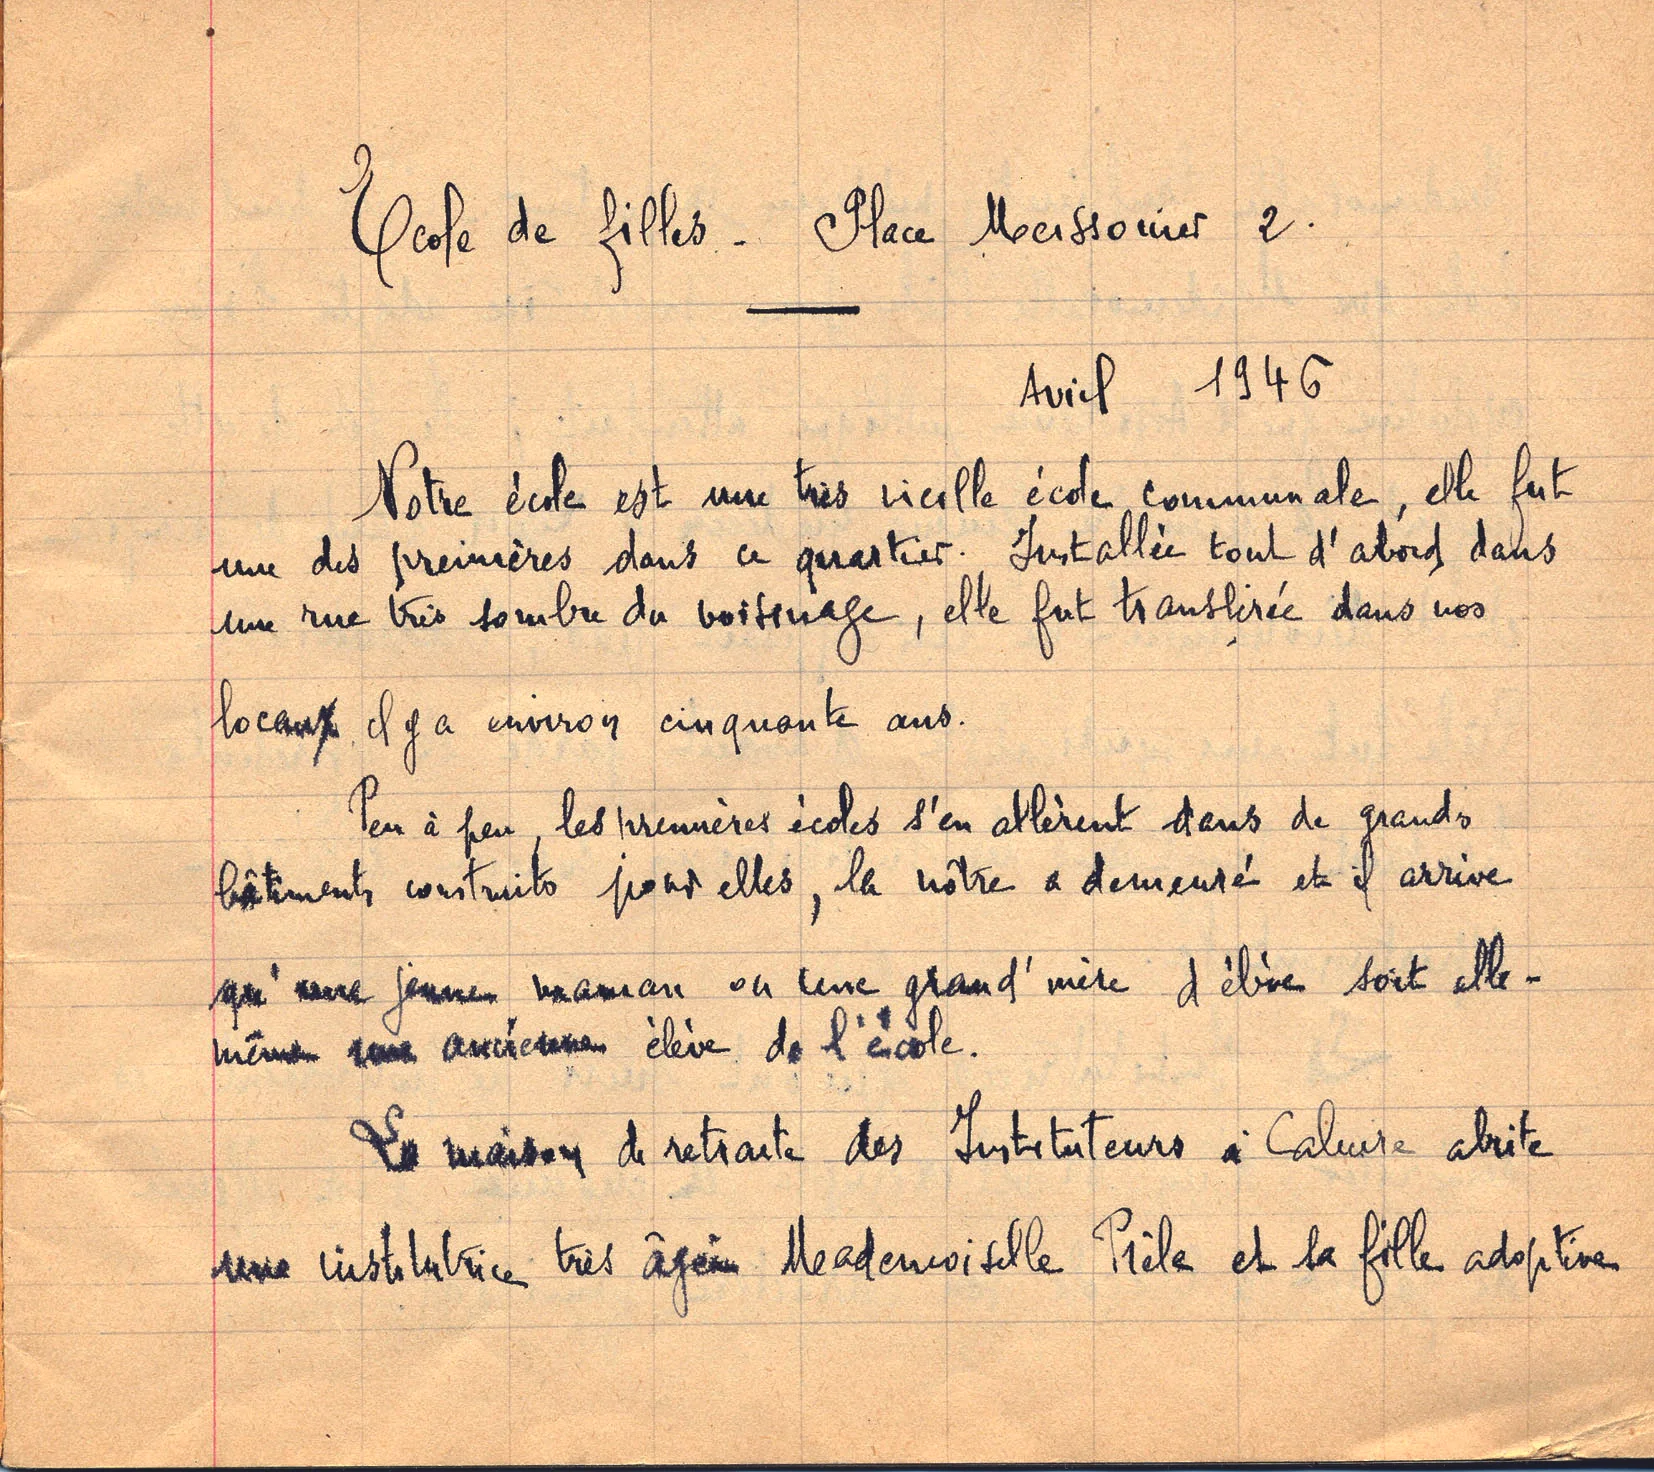 École de filles - Place Meissonier 2.
Avril 1946
Notre école est une très vieille école communale, elle fut
une des premières dans ce quartier. Installée tout d'abord dans
une rue très sombre du voisinage, elle fut transférée dans nos
locaux il y a environ cinquante ans.
Peu à peu, les premières écoles s'en allèrent dans de grands
bâtiments construits pour elles, la nôtre a demeuré et il arrive
qu'une jeune maman ou une grand'mère d'élève soit elle-
même une ancienne élève de l'école.
La maison de retraite des Instituteurs à Caluire abrite
une institutrice très âgée Mademoiselle et sa fille adoptive